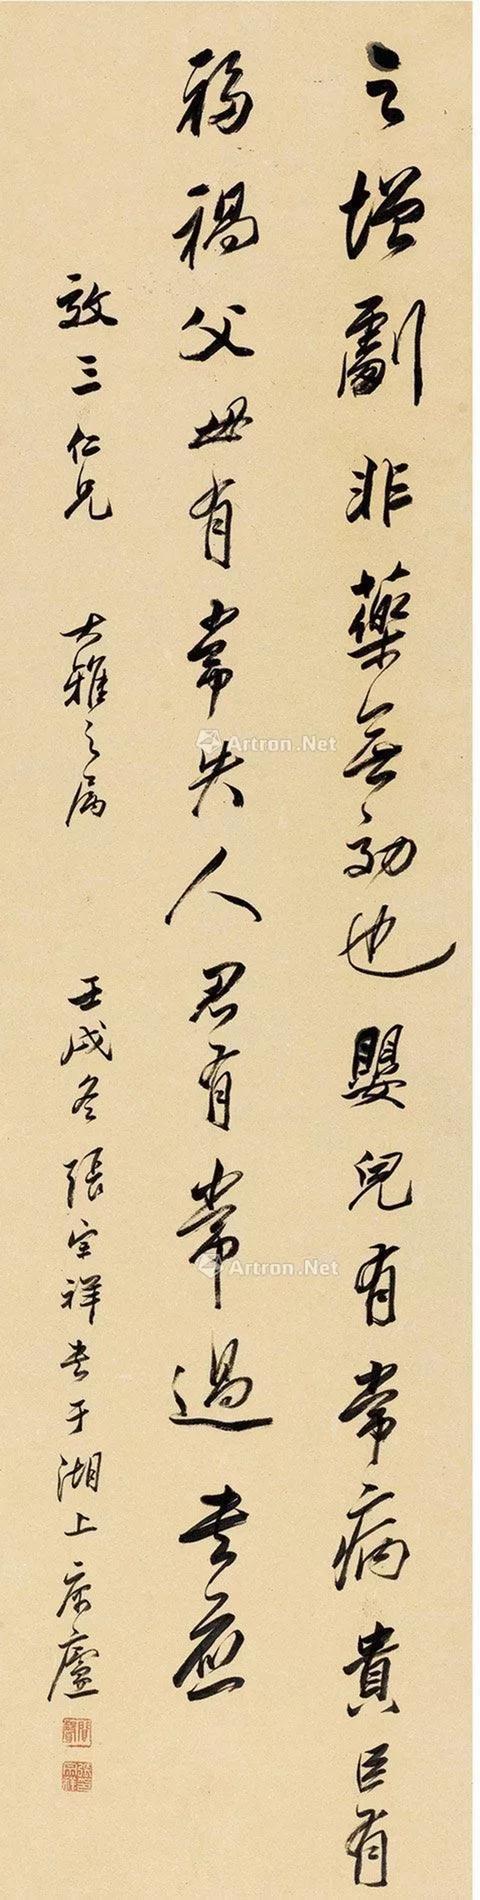 之增劇非藥無効也嬰兒有常病貴臣有
福禍父母有常失人君有常過書應
三仁兄 大雅之屬 壬戌冬張宗祥書于湖上廬
Artron.Net
Artron.Net